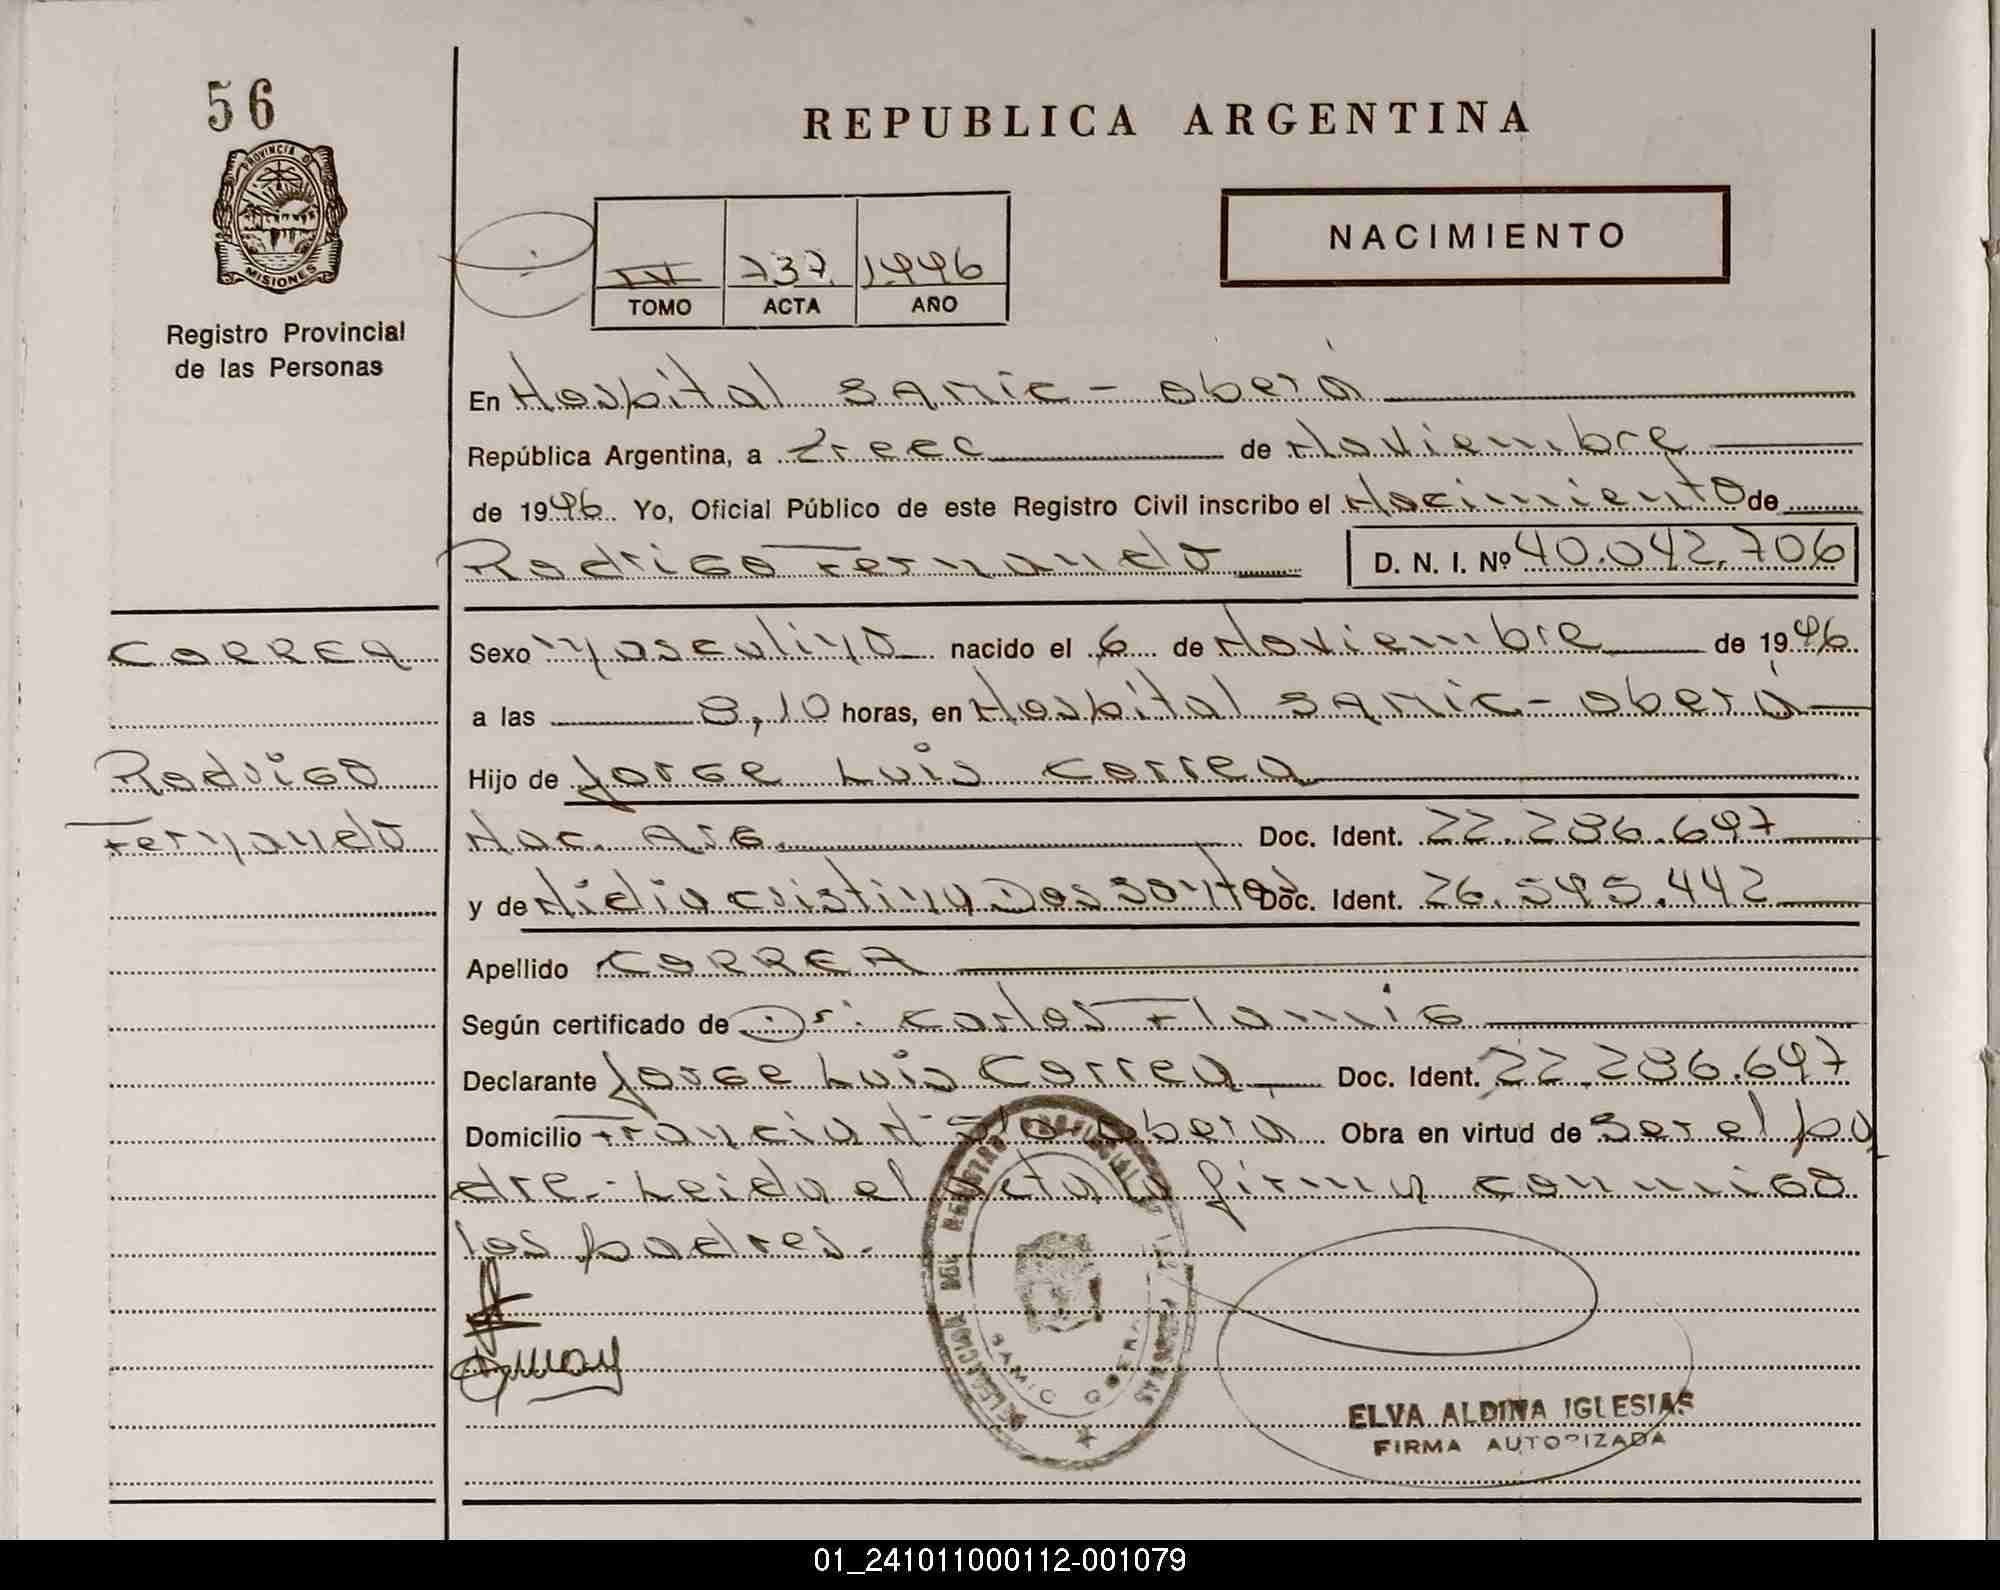 56
PROVINCIA D
MISIONES
Registro Provincial
de las Personas
REPUBLICA ARGENTINA
NACIMIENTO
737 1996
TOMO ACTA AÑO
En Hospital SAMIC - Oberá
República Argentina, a Trece de Noviembre
de 1996. Yo, Oficial Público de este Registro Civil inscribo el Nacimiento de
Rodrigo Fernando D. N. I. Nº 40.042.706
CORREA
Rodrigo
Fernando
Sexo Masculino nacido el 6 de Noviembre de 1996
a las 8,10 horas, en Hospital SAMIC - Oberá
Hijo de Jorge Luis Correa
Nac. Arg. Doc. Ident. 22.286.697
y de Nidia Cristina Dos Santos Doc. Ident. 26.595.442
Apellido CORREA
Según certificado de Dr. Carlos Flamig
Declarante Jorge Luis Correa Doc. Ident. 22.286.697
Domicilio Francia Oberá Obra en virtud de Ser el pa
dre.- Leida el Acta la firman conmigo
los padres.
DELEGACION DEL REGISTRO PROVINCIAL DE LAS PERSONAS
SAMIC OBERA
ELVA ALDINA IGLESIAS
FIRMA AUTORIZADA
01_241011000112-001079